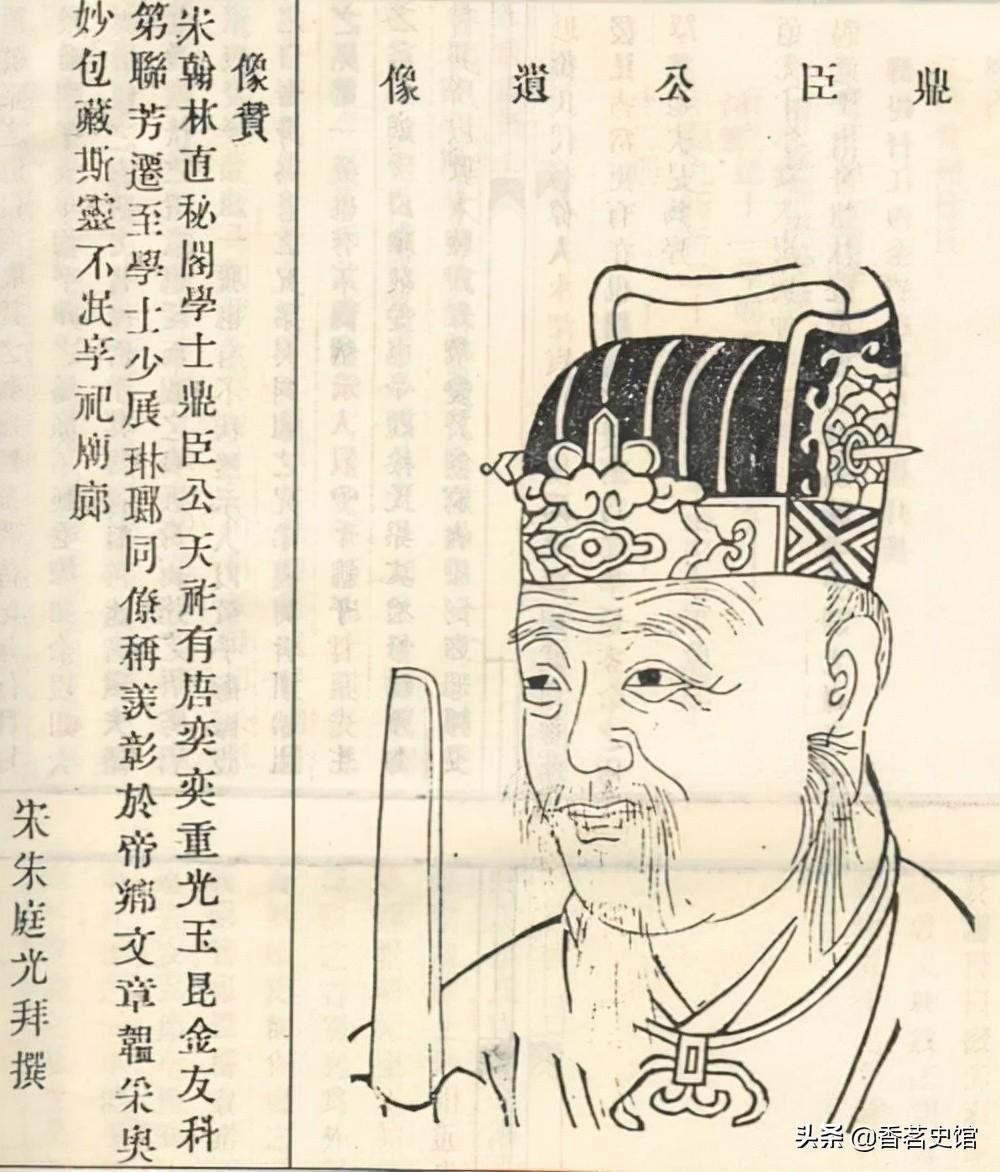 鼎臣公遺像
像贊
宋翰林直秘閣學士鼎臣公天祚有唐奕奕重光玉昆金友科
第聯芳遷至學士少展琳瑯同僚稱羨彰於帝鄉文章韞朵奧
妙包藏斯靈不泯享祀廟廊
宋朱庭光拜撰
头条 @香茗史馆